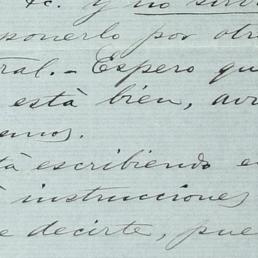 &c. y no
ponerlo por otr
ral. - Espero qu
está bien, av
emos.
tá escribiendo e
instrucciones
e decirte, pue